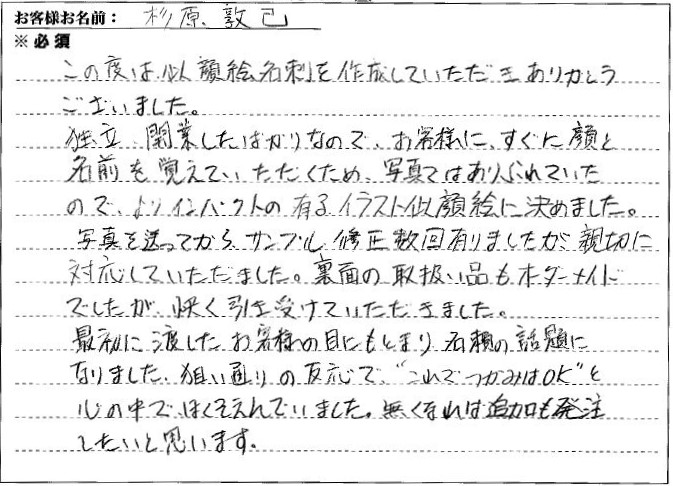 お客様お名前： 杉原 敦己
※必須
この度は、似顔絵名刺を作成していただきありがとう
ございました。
独立、開業したばかりなので、お客様に、すぐに顔と
名前を覚えていただくため、写真ではありふれていた
ので、よりインパクトの有るイラスト似顔絵に決めました。
写真を送ってから、サンプル、修正数回有りましたが、親切に
対応していただました。裏面の取扱い品もオーダーメイド
でしたが、快く引き受けていただきました。
最初に渡したお客様の目にもとまり、名刺の話題に
なりました、狙い通りの反応で、"これでつかみはOK"と
心の中でほくそえんでいました。無くなれば追加も発注
したいと思います。